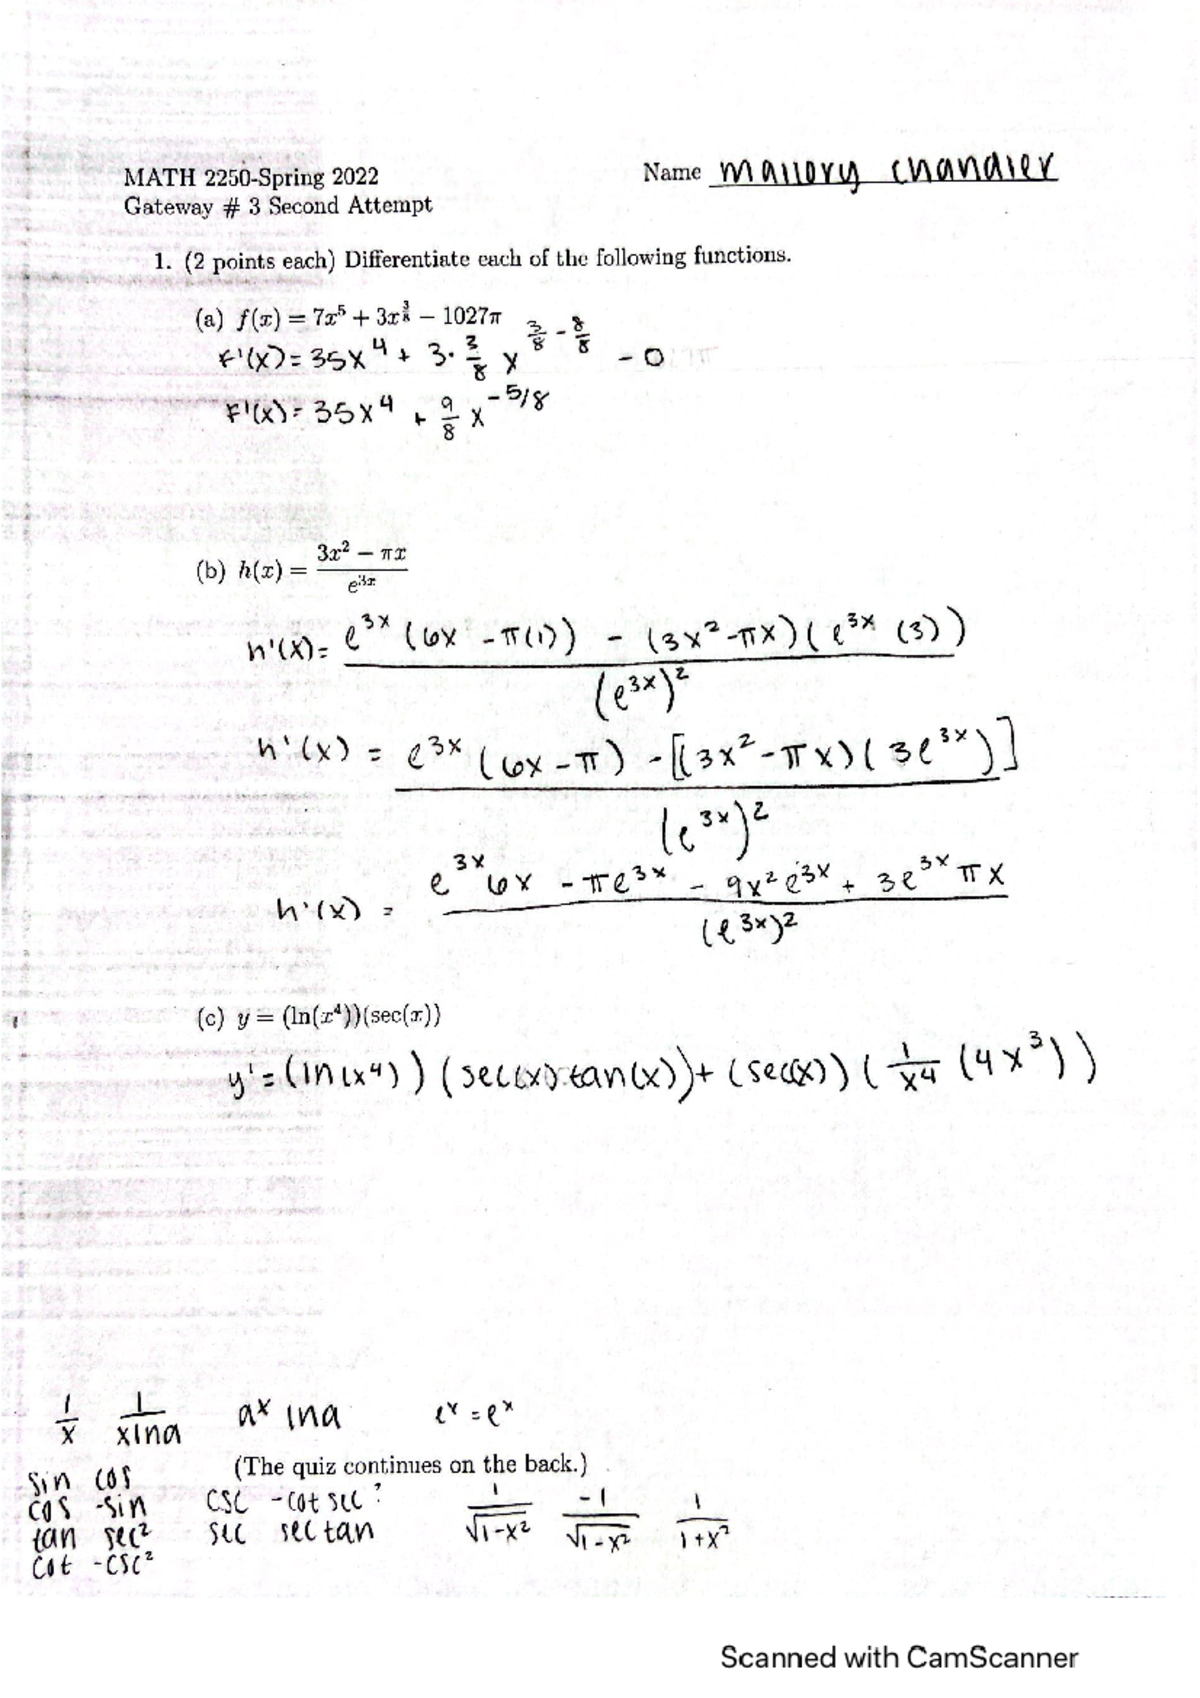 MATH 2250-Spring 2022
Name Mallory Chandler
Gateway # 3 Second Attempt
1. (2 points each) Differentiate each of the following functions.
(a) f(x) = 7x^5 + 3x^{3/8} − 1027π
F'(x) = 35x^4 + 3·3/8 x^{3/8 - 8/8} - 0
F'(x) = 35x^4 + 9/8 x^{-5/8}
(b) h(x) = (3x^2 − πx)/e^{3x}
h'(x) = (e^{3x}(6x - π(1)) - (3x^2 - πx)(e^{3x}(3)))/(e^{3x})^2
h'(x) = (e^{3x}(6x - π) - [(3x^2 - πx)(3e^{3x})])/(e^{3x})^2
h'(x) = (e^{3x}6x - πe^{3x} - 9x^2e^{3x} + 3e^{3x}πx)/(e^{3x})^2
(c) y = (ln(x^4))(sec(x))
y' = (ln(x^4))(sec(x)·tan(x)) + (sec(x))(1/x^4 (4x^3))
1/x 1/(x ln a) a^x ln a e^x = e^x
(The quiz continues on the back.)
sin cos
cos -sin csc -cot sec? 1/√(1-x^2) -1/√(1-x^2) 1/(1+x^2)
tan sec^2 sec sec tan
cot -csc^2
Scanned with CamScanner